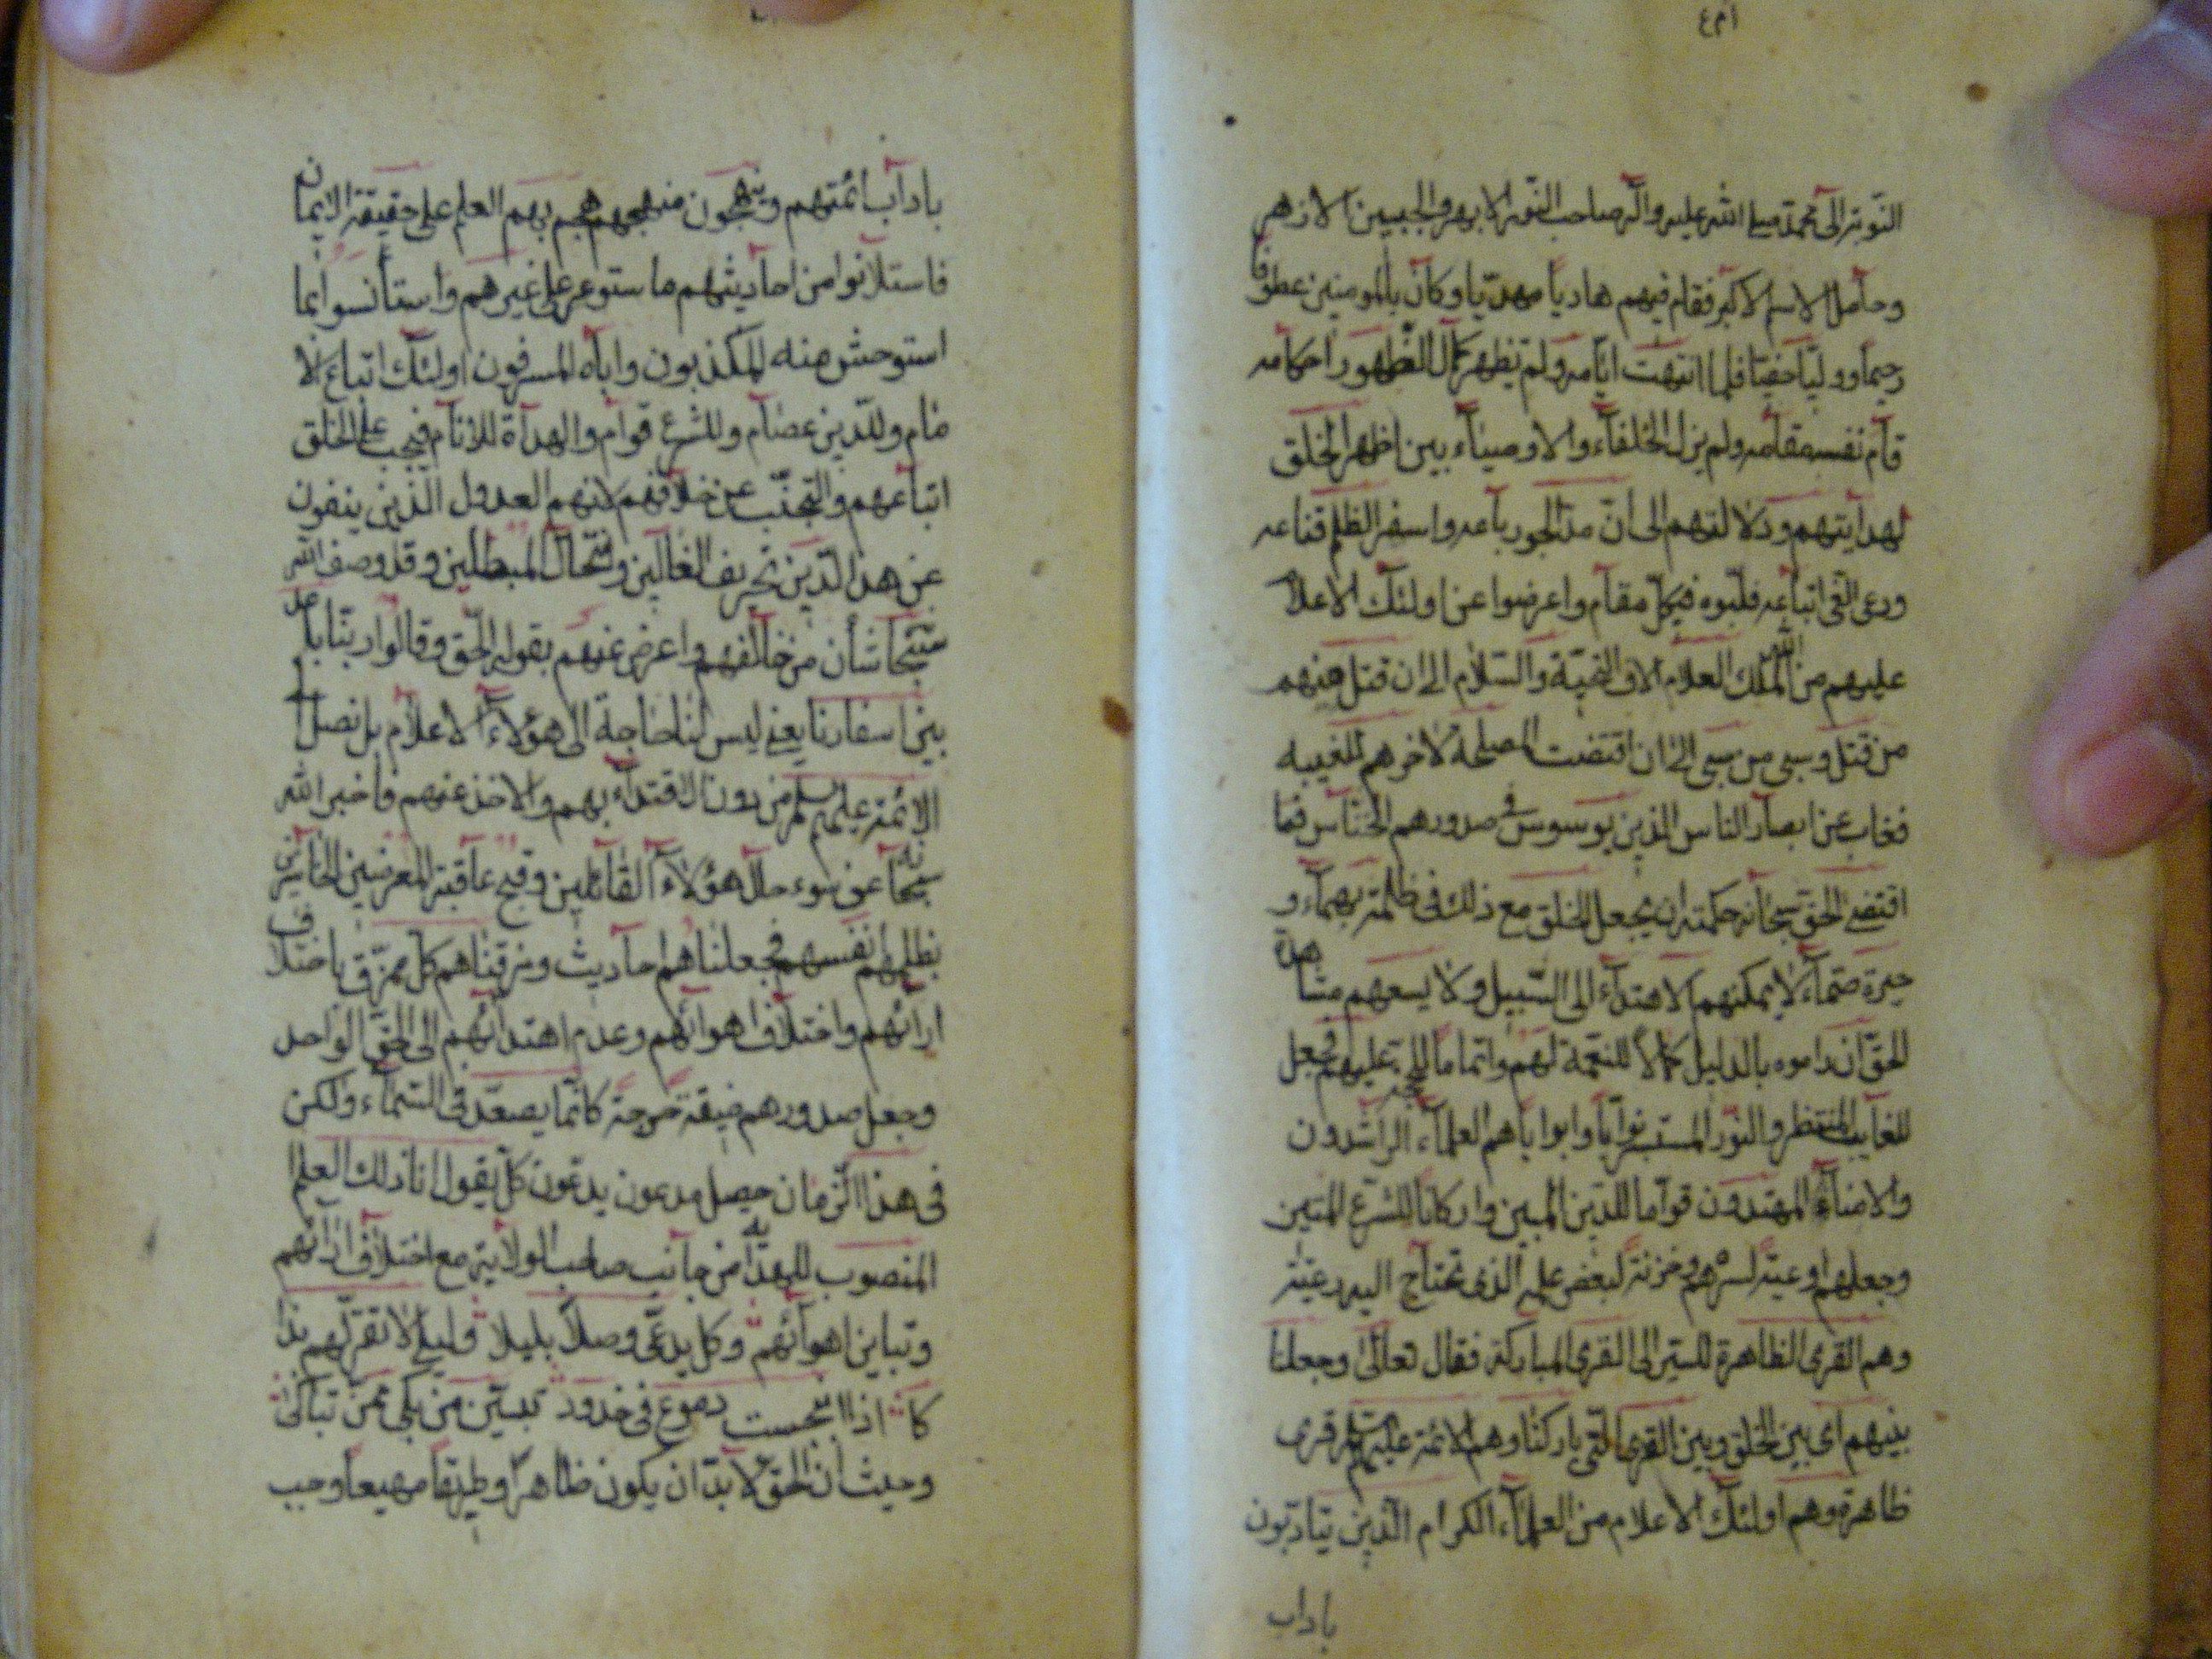 النوبة الى محمد صلى الله عليه وآله صاحب النور الابهر والجبين الازهر
وحامل الاسم الاكبر فقام فيهم هاديا مهديا وكان بالمومنين عطوفا
رحيما ووليا حفيا فلما انتهت ايامه ولم تظهر كمال الظهور احكامه
قام نفسه مقامه ولم يزل الخلفاء والاوصياء بين اظهر الخلق
لهدايتهم ودلالتهم الى ان مد الجور باعه واسفر الظلم قناعه
ودعى الغى اتباعه فلبوه فى كل مقام واعرضوا عن اولئك الاعلام
عليهم من الله الملك العلام الاف التحية والسلام الى ان قتل منهم
من قتل وسبى من سبى الى ان اقتضت المصلحة لاخرهم الغيبه
فغاب عن ابصار الناس الذين يوسوس فى صدورهم الخناس فما
اقتضى الحق سبحانه حكمته ان يجعل الخلق مع ذلك فى ظلمة بهماء و
حيرة صماء لا يمكنهم الاهتداء الى السبيل ولا يسعهم مشاهدة
الحق ان داموه بالدليل كمالا للنعمة لهم واتماما للحجة عليهم فجعل
للغايب المنتظر والنور المستتر نوابا وابوابا هم العلماء الراشدون
والامناء المهتدون قواما للدين المبين واركانا للشرع المتين
وجعلهم اوعية لسرهم وخزنة لبعض علمه الذى تحتاج اليه رعيته
وهم القرى الظاهرة للسير الى القرى المباركة فقال تعالى وجعلنا
بينهم اى بين الخلق وبين القرى التى باركنا وهم الائمة عليهم السلم قرى
ظاهرة وهم اولئك الاعلام من العلماء الكرام الذين يتادبون
باداب
باداب ائمتهم وينهجون منهجهم هجم بهم العلم على حقيقة الايمان
فاستلانوا من احاديثهم ما ستوعر على غيرهم واستأنسوا بما
استوحش منه المكذبون واباه المسرفون اولئك اتباع الا
مام وللدين عصام وللشرع قوام والهداة للانام فيجب على الخلق
اتباعهم والتجنب عن خلافهم لانهم العدول الذين ينفون
عن هذا الدين تحريف الغالين وانتحال المبطلين وقد وصف الله
سبحانه شأن من خالفهم واعرض عنهم بقوله الحق وقالوا ربنا باعد
بين اسفارنا يعنى ليس لنا حاجة الى هؤلاء الاعلام بل نصل
الائمة عليهم السلم من دون الاقتداء بهم والاخذ عنهم فاخبر الله
سبحانه عن سوء حال هؤلاء القائلين وقبح عاقبة المعرضين الخاسرين
بظلمهم انفسهم فجعلناهم احاديث ومزقناهم كل ممزق باختلاف
ارائهم واختلاف اهوائهم وعدم اهتدائهم الى الحق الواحد
وجعل صدورهم ضيقة حرجة كانما يصعد فى السماء ولكن
فى هذا الزمان حصل مدعون يدعون كل يقول انا ذلك العلم
المنصوب للهداية من جانب صاحب الولاية مع اختلاف ارائهم
وتباين اهوائهم وكل يدعى وصلا بليلا وليلى لا تقر لهم بذا
كا اذا انبجست دموع فى خدود تبين من بكى ممن تباكى
وحيث ان الحق لابد ان يكون ظاهرا وطريقا مهيعا وجب